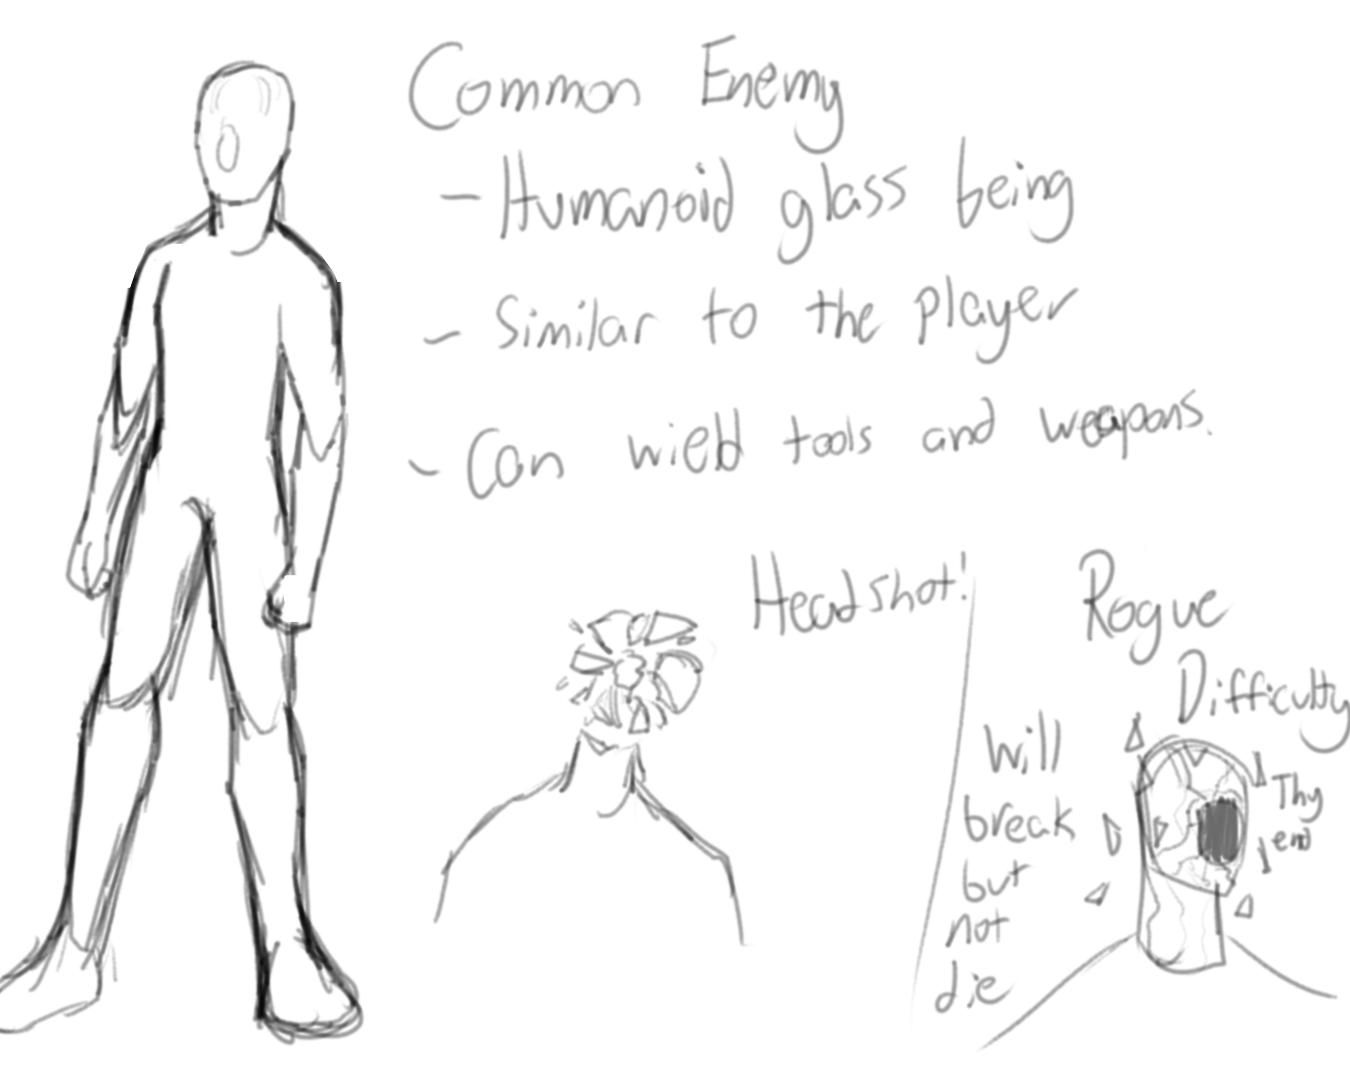 Common Enemy
- Humanoid glass being
- Similar to the player
- Can wield tools and weapons.
Headshot!
Rogue
Difficulty
Will
break
but
not
die
Thy
end